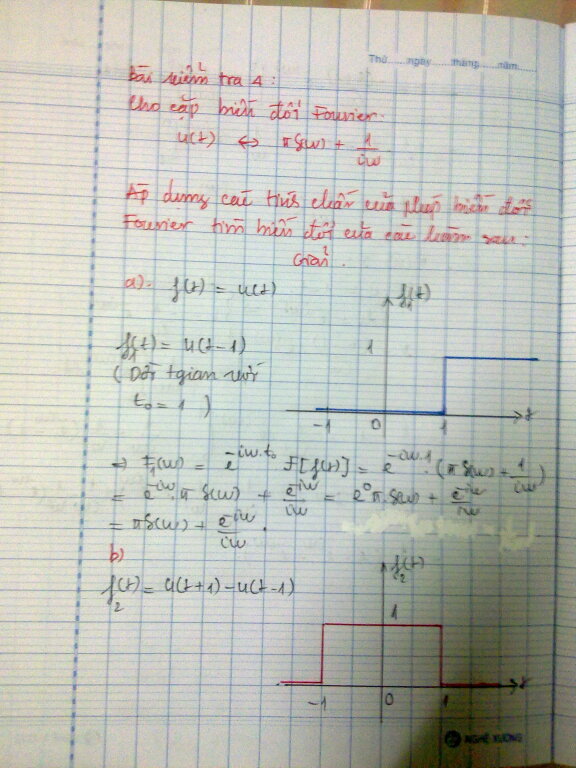 Thứ......ngày......tháng......năm......
Bài kiểm tra 4 :
Cho cặp biến đổi Fourier.
u(t) ↔ πδ(ω) + 1/iω
Áp dụng các tính chất của phép biến đổi
Fourier tìm biến đổi của các hàm sau :
Giải.
a). f(t) = u(t)
f₁(t)
f₁(t) = u(t-1)
1
(Dời tgian với
t₀ = 1 )
-1 0 1 t
⇒ F₁(ω) = e^{-iω.t₀} F[f(t)] = e^{-iω.1} . (πδ(ω) + 1/iω)
= e^{-iω}.πδ(ω) + e^{-iω}/iω = e⁰π.δ(ω) + e^{-iω}/iω
= πδ(ω) + e^{-iω}/iω .
b)
f₂(t)
f₂(t) = u(t+1) - u(t-1)
1
-1 0 1 t
NGHỆ XƯƠNG